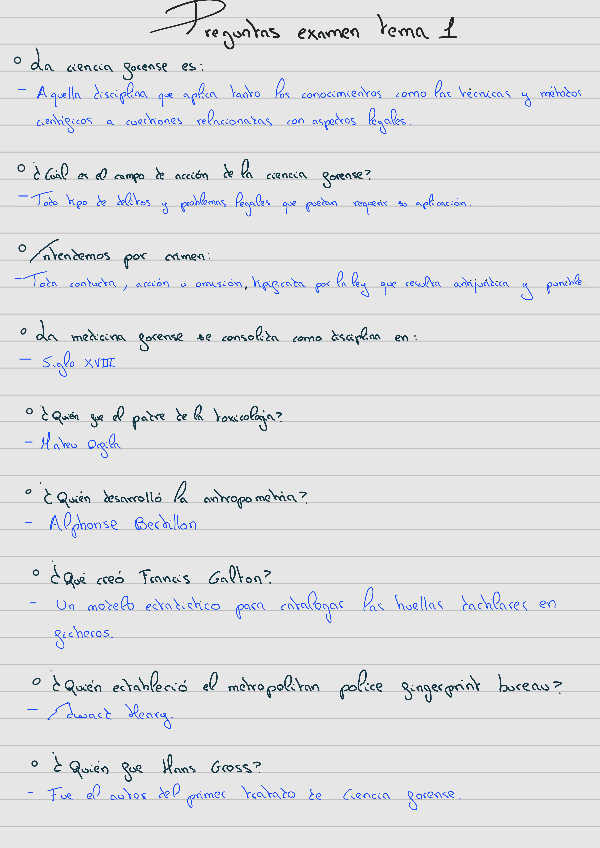 Preguntas examen tema 1
° La ciencia forense es:
- Aquella disciplina que aplica tanto los conocimientos como las técnicas y métodos
científicos a cuestiones relacionadas con aspectos legales.
° ¿Cuál es el campo de acción de la ciencia forense?
- Todo tipo de delitos y problemas legales que puedan requerir su aplicación.
° Entendemos por crimen:
- Toda conducta, acción u omisión, tipificada por la ley que resulta antijurídica y punible
° La medicina forense se consolida como disciplina en:
- Siglo XVIII
° ¿Quién fue el padre de la toxicología?
- Mateu Orfila
° ¿Quién desarrolló la antropometria?
- Alphonse Bertillon
° ¿Qué creó Francis Galton?
- Un modelo estadístico para catalogar las huellas dactilares en
ficheros.
° ¿Quién estableció el metropolitan police fingerprint bureau?
- Edward Henry.
° ¿Quién fue Hans Gross?
- Fue el autor del primer tratado de Ciencia forense.